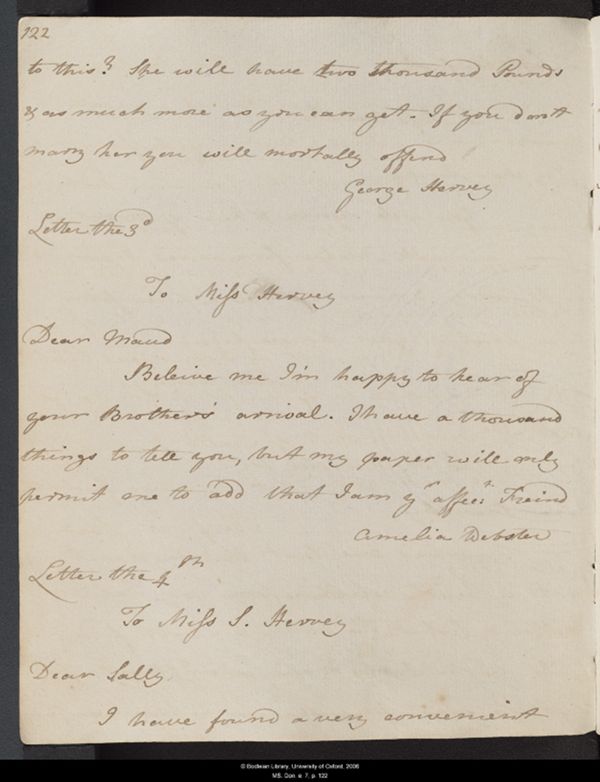 122
to this? She will have two thousand Pounds
& as much more as you can get. If you don't
marry her you will mortally offend
George Hervey
Letter the 3d
To Miss Hervey
Dear Maud
Beleive me I'm happy to hear of
your Brother's arrival. I have a thousand
things to tell you, but my paper will only
permit me to add that I am yr affect: Freind
Amelia Webster
Letter the 4th
To Miss S. Hervey
Dear Sally
I have found a very convenient
© Bodleian Library, University of Oxford, 2006
MS. Don. e. 7, p. 122